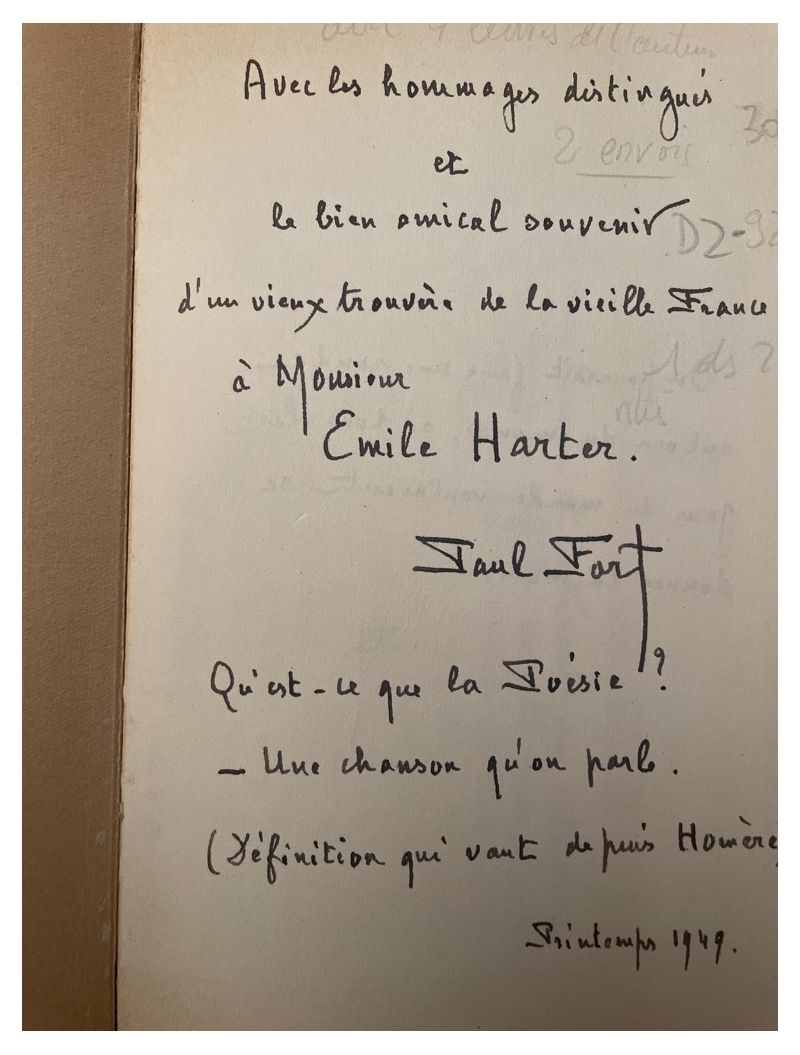 avec 4 lettres de l'auteur
Avec les hommages distingués
30
2 envois
et
le bien amical souvenir
D2-92
d'un vieux trouvère de la vieille France
1 ds 2
à Monsieur
Emile Harter.
Paul Fort
Qu'est-ce que la Poésie ?
— Une chanson qu'on parle.
(Définition qui vaut depuis Homère)
Printemps 1949.